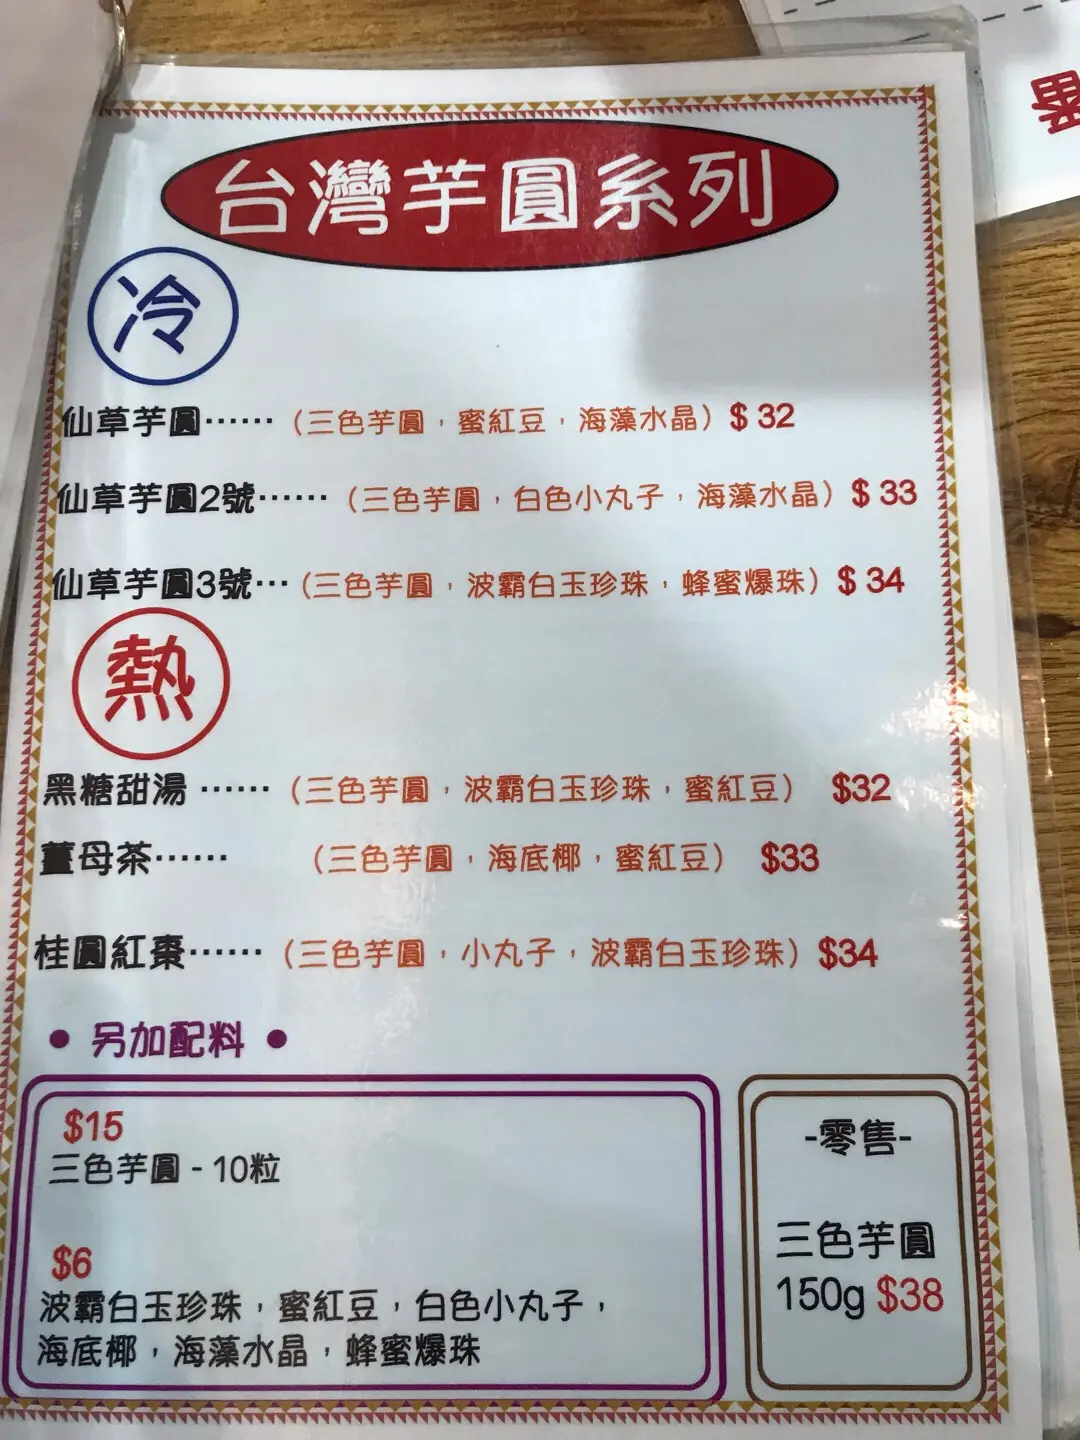 台灣芋圓系列
冷
仙草芋圓⋯⋯（三色芋圓，蜜紅豆，海藻水晶）$ 32
仙草芋圓2號⋯⋯（三色芋圓，白色小丸子，海藻水晶）$ 33
仙草芋圓3號⋯（三色芋圓，波霸白玉珍珠，蜂蜜爆珠）$ 34
熱
黑糖甜湯⋯⋯（三色芋圓，波霸白玉珍珠，蜜紅豆） $32
薑母茶⋯⋯（三色芋圓，海底椰，蜜紅豆） $33
桂圓紅棗⋯⋯（三色芋圓，小丸子，波霸白玉珍珠）$34
• 另加配料 •
$15
三色芋圓 - 10粒
$6
波霸白玉珍珠，蜜紅豆，白色小丸子，
海底椰，海藻水晶，蜂蜜爆珠
-零售-
三色芋圓
150g $38
番